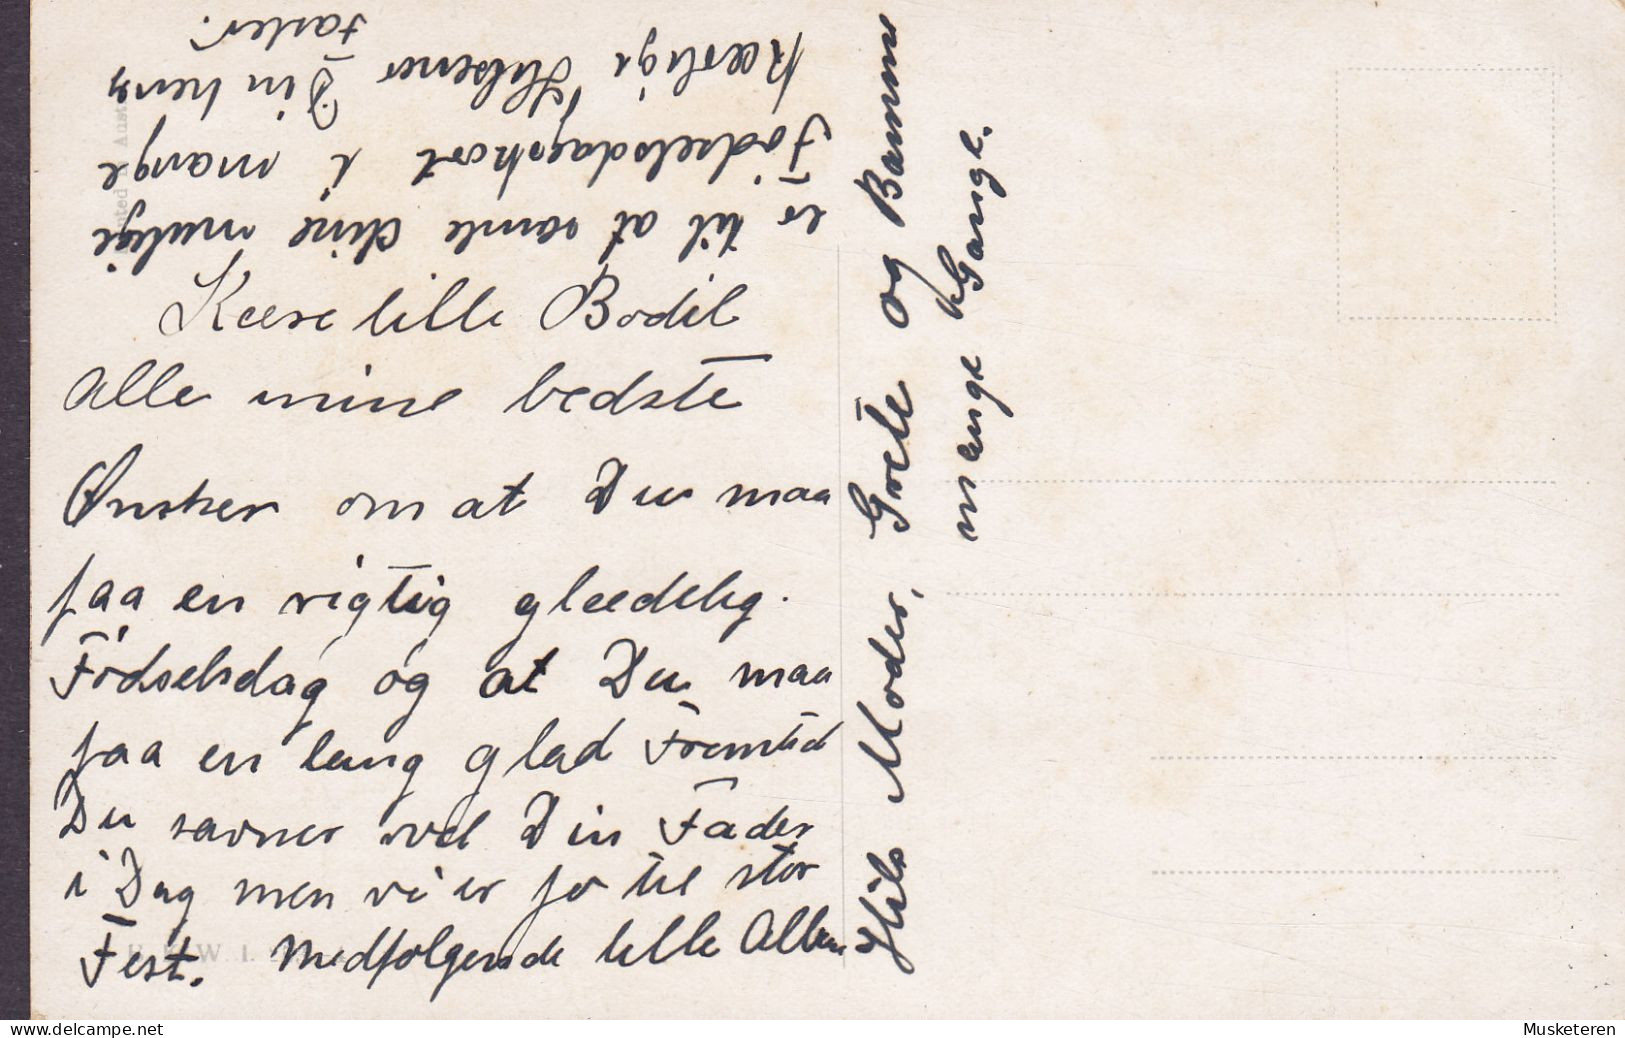 Kære lille Bodil
Alle mine bedste
Ønsker om at Du maa
faa en rigtig glædelig.
Födselsdag og at Du maa
faa en lang glad Fremtid
Du savner vel Din Fader
i Dag men vi er jo til stor
Fest. Medfølgende lille Album
er til at samle dine mulige
Fødselsdagskort i mange
kærlige Hilsener Din heng
Faster.
Hils Moder, Grete og Bamme
mange Gange.
Printed in Aust
W. I.
Musketeren
delcampe.net